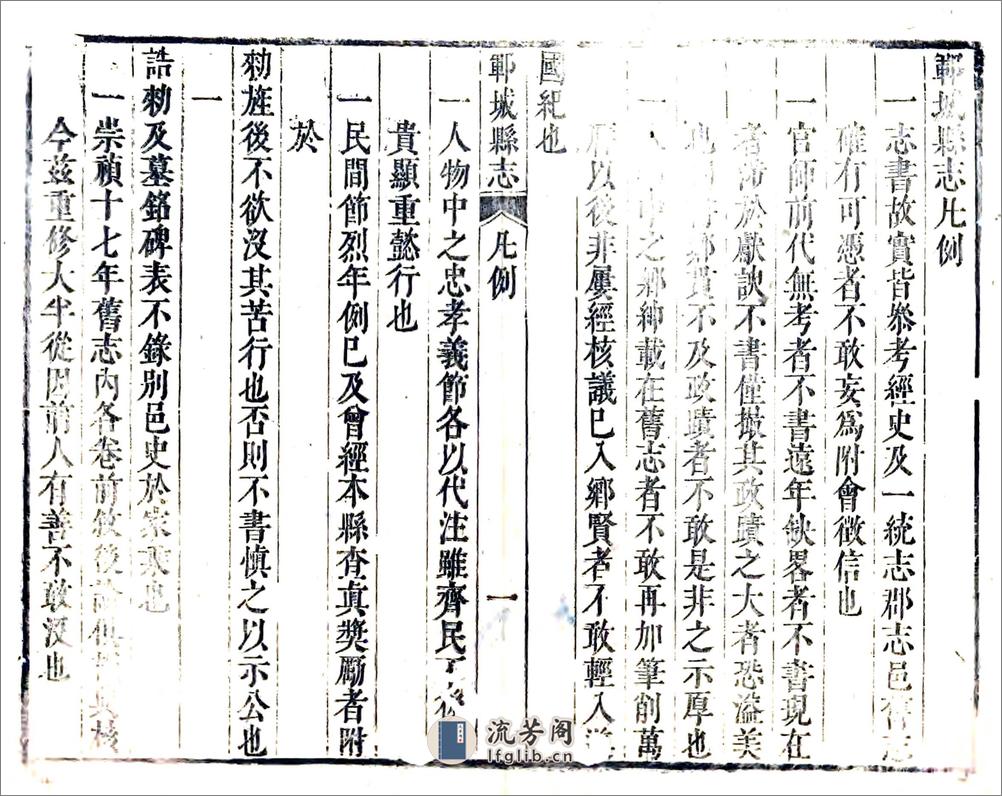 鄆城縣志凡例
一志書故實皆叅考經史及一統志郡志邑舊志
確有可憑者不敢妄爲附會徵信也
一官師前代無考者不書遠年缺畧者不書現在
者涉於獻諛不書僅撮其政蹟之大者恐溢美
也 鄉貫不及政蹟者不敢是非之示厚也
一人 中之鄉紳載在舊志者不敢再加筆削萬
曆以後非屢經核議已入鄉賢者不敢輕入遵
國紀也
鄆城縣志 凡例 一
一人物中之忠孝義節各以代注雖齊民
貴顯重懿行也
一民間節烈年例已及曾經本縣查真奬勵者附
於
勅旌後不欲沒其苦行也否則不書慎之以示公也
一
誥勅及墓銘碑表不錄別邑史於家乘也
一崇禎十七年舊志內各卷前敘後論 其核
今茲重修大半從因前人有善不敢沒也
流芳阁
lfglib.cn